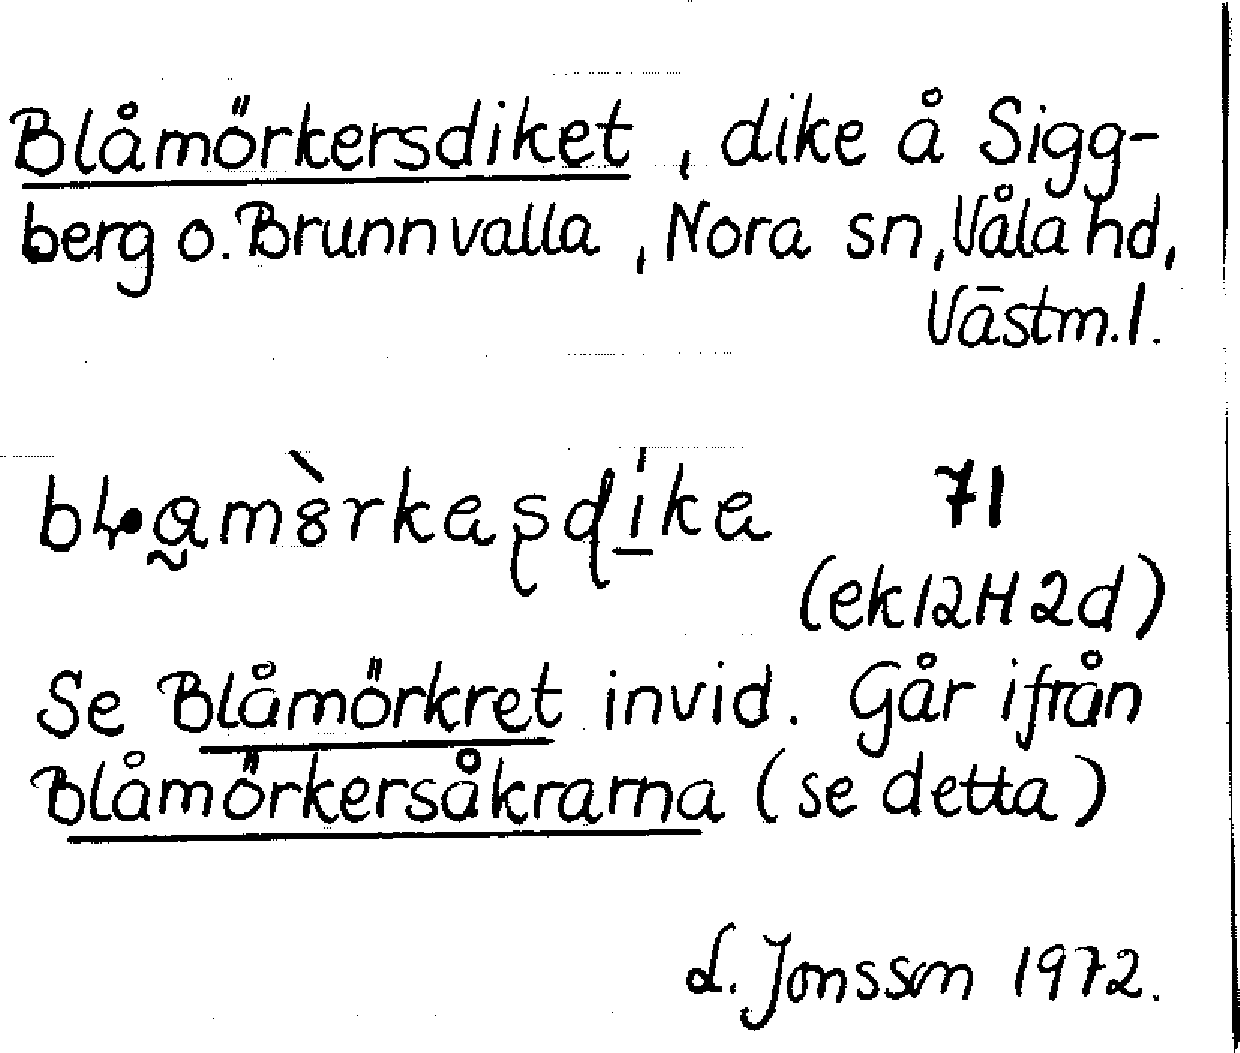 Blåmörkersdiket, dike å Sigg-
berg o. Brunnvalla, Nora sn, Våla hd,
Västm. l.
71
(ek 12H 2d)
Se Blåmörkret invid. Går ifrån
Blåmörkersåkrarna (se detta)
L. Jonsson 1972.